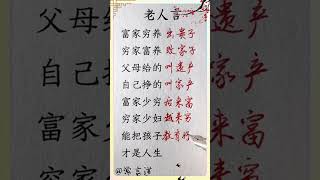 老人言
富家穷养出贵子
穷家富养败家子
父母给的叫遗产
自己挣的叫家产
富家少穷招来富
穷家少妇越来穷
能把孩子教育好
才是人生